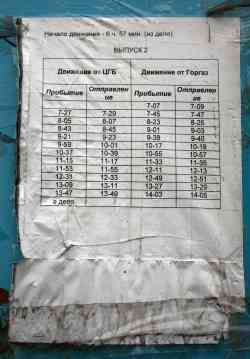 Начало движения - 6 ч. 57 мин. (из депо)
ВЫПУСК 2
Движение от ЦГБ Движение от Горгаз
Прибытие Отправление Прибытие Отправление
7-07 7-09
7-27 7-29 7-45 7-47
8-05 8-07 8-23 8-25
8-43 8-45 9-01 9-03
9-21 9-23 9-39 9-40
9-59 10-01 10-17 10-19
10-37 10-39 10-55 10-57
11-15 11-17 11-33 11-35
11-53 11-55 12-11 12-13
12-31 12-33 12-49 12-51
13-09 13-11 13-27 13-29
13-47 13-49 14-03 14-05
в депо